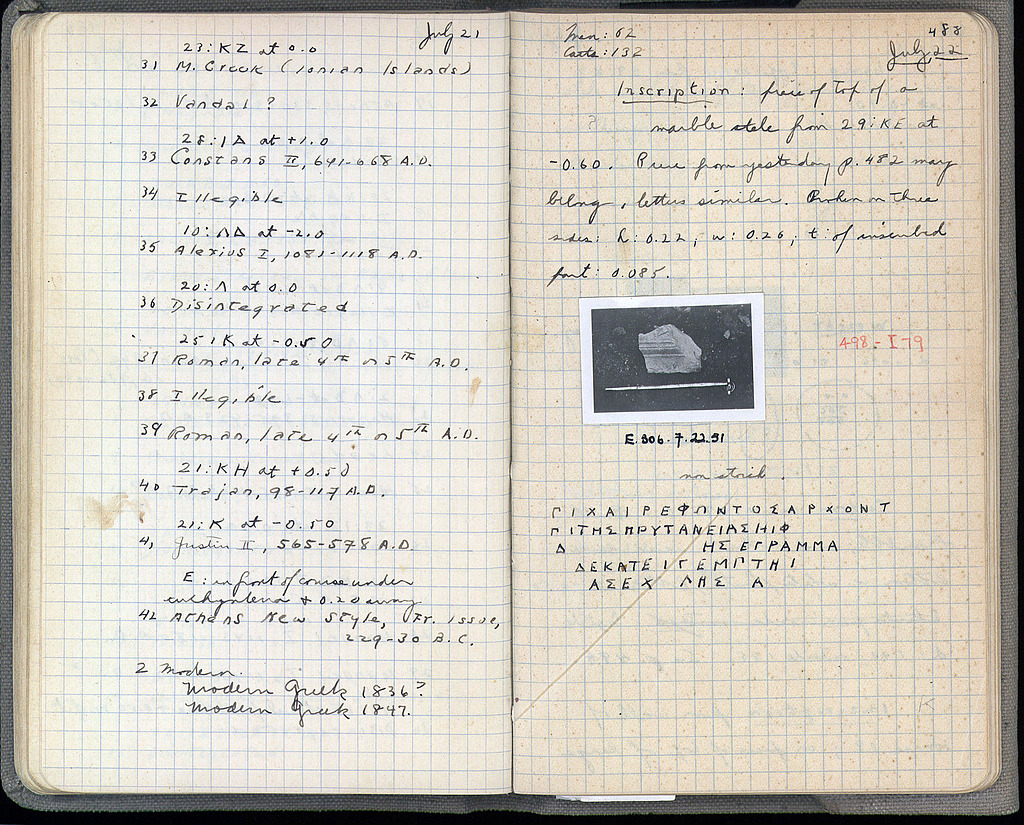 July 21
23:KZ at 0.0
31 M. Greek (Ionian Islands)
32 Vandal ?
28:ΙΔ at +1.0
33 Constans II, 641-668 A.D.
34 Illegible
10:ΛΔ at -2.0
35 Alexius I, 1081-1118 A.D.
20:Λ at 0.0
36 Disintegrated
25:K at -0.50
37 Roman, late 4th or 5th A.D.
38 Illegible
39 Roman, late 4th or 5th A.D.
21:KH at +0.50
40 Trajan, 98-117 A.D.
21:K at -0.50
41 Justin II, 565-578 A.D.
E: in front of course under
euthynteria & 0.20 away
42 Athens New Style, Fr. Issue,
229-30 B.C.
2 Modern.
Modern Greek 1836?
Modern Greek 1847.
Men: 62
Carts: 132
483
July 22
Inscription: piece of top of a
? marble stele from 29:KE at
-0.60. Piece from yesterday p. 482 may
belong, letters similar. Broken on three
sides: h: 0.22; w: 0.26; t: of inscribed
part: 0.085.
498-I 79
E.306.7.22.31
non stoich.
ΓΙΧΑΙΡΕΦΩΝΤΟΣΑΡΧΟΝΤ
ΓΙΤΗΣΠΡΥΤΑΝΕΙΑΣΗΙΦ
Δ ΗΣΕΓΡΑΜΜΑ
ΔΕΚΑΤΕΙΓΕΜΠΤΗΙ
ΑΣΕΧ ΛΗΣ Α
K